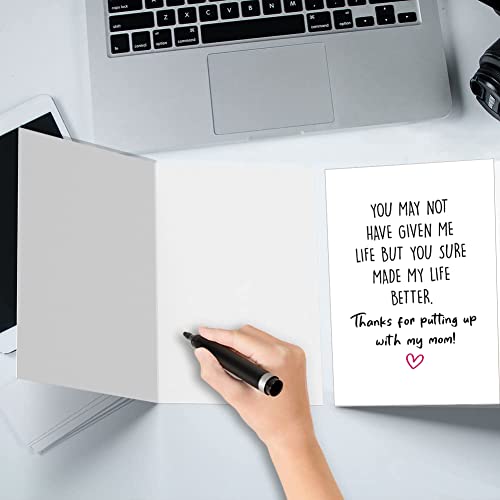 YOU MAY NOT
HAVE GIVEN ME
LIFE BUT YOU SURE
MADE MY LIFE
BETTER.
Thanks for putting up
with my mom!